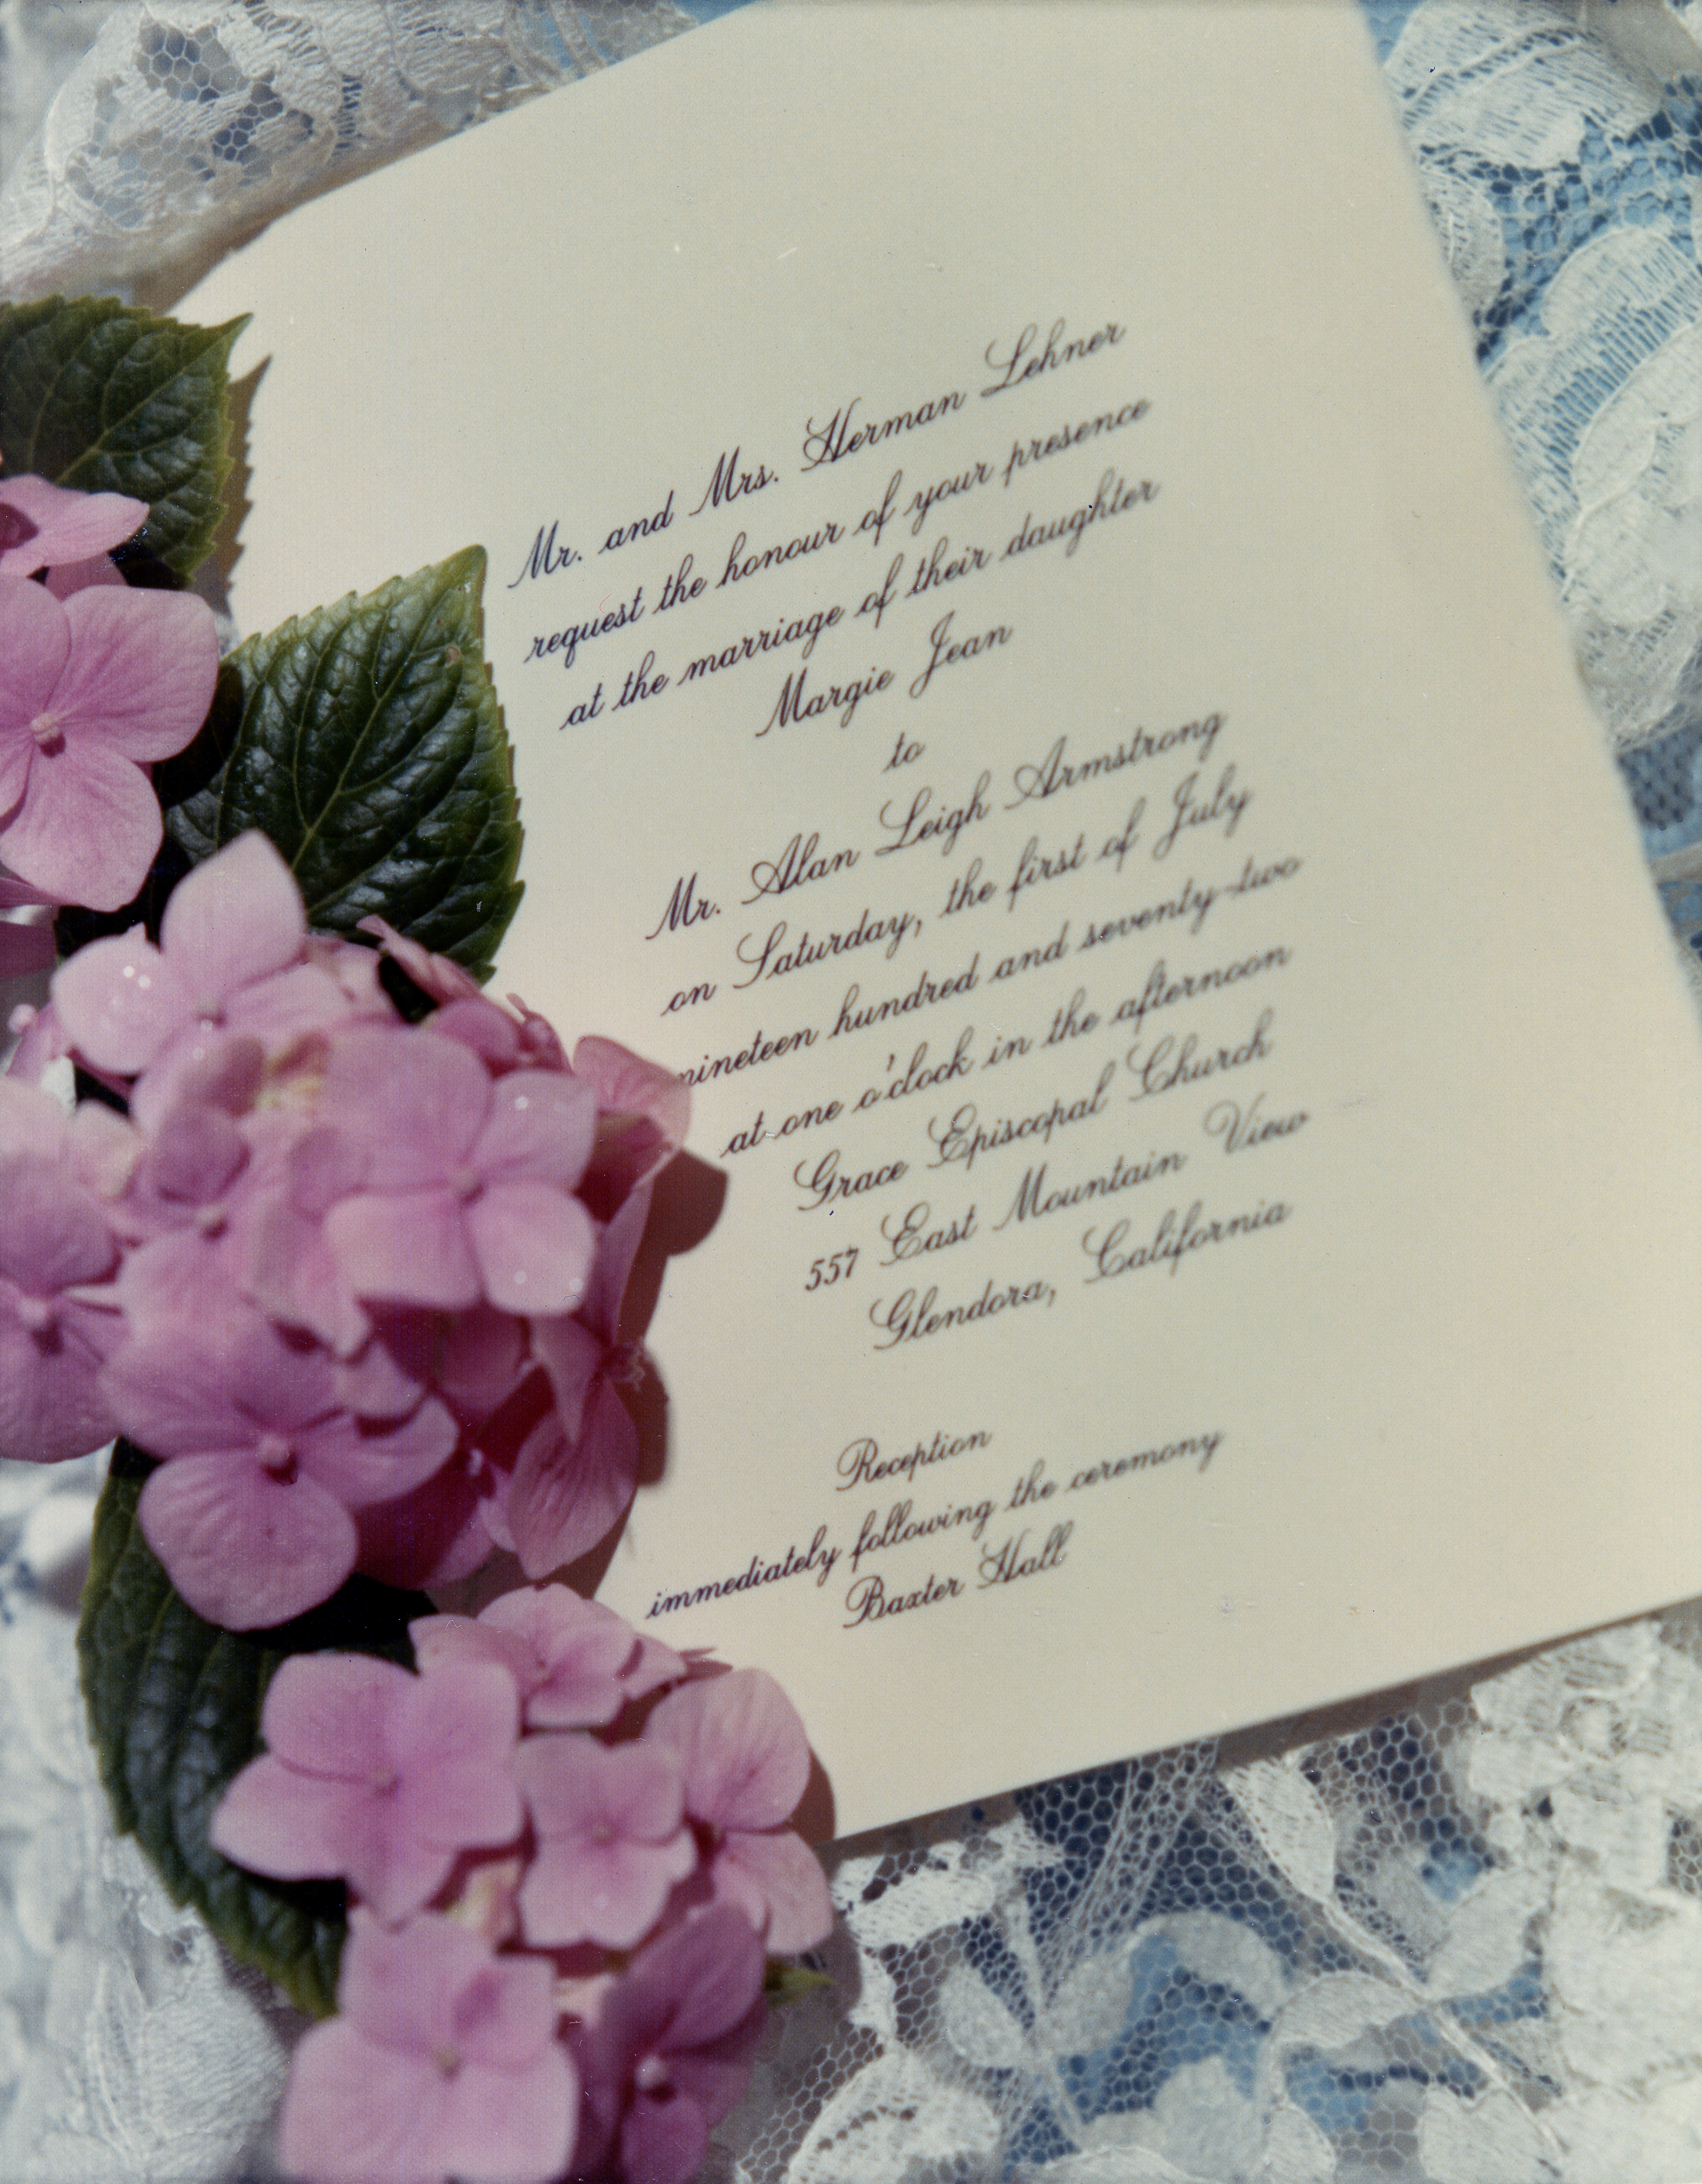 Mr. and Mrs. Herman Lehner
request the honour of your presence
at the marriage of their daughter
Margie Jean
to
Mr. Alan Leigh Armstrong
on Saturday, the first of July
nineteen hundred and seventy-two
at one o'clock in the afternoon
Grace Episcopal Church
557 East Mountain View
Glendora, California
Reception
immediately following the ceremony
Baxter Hall